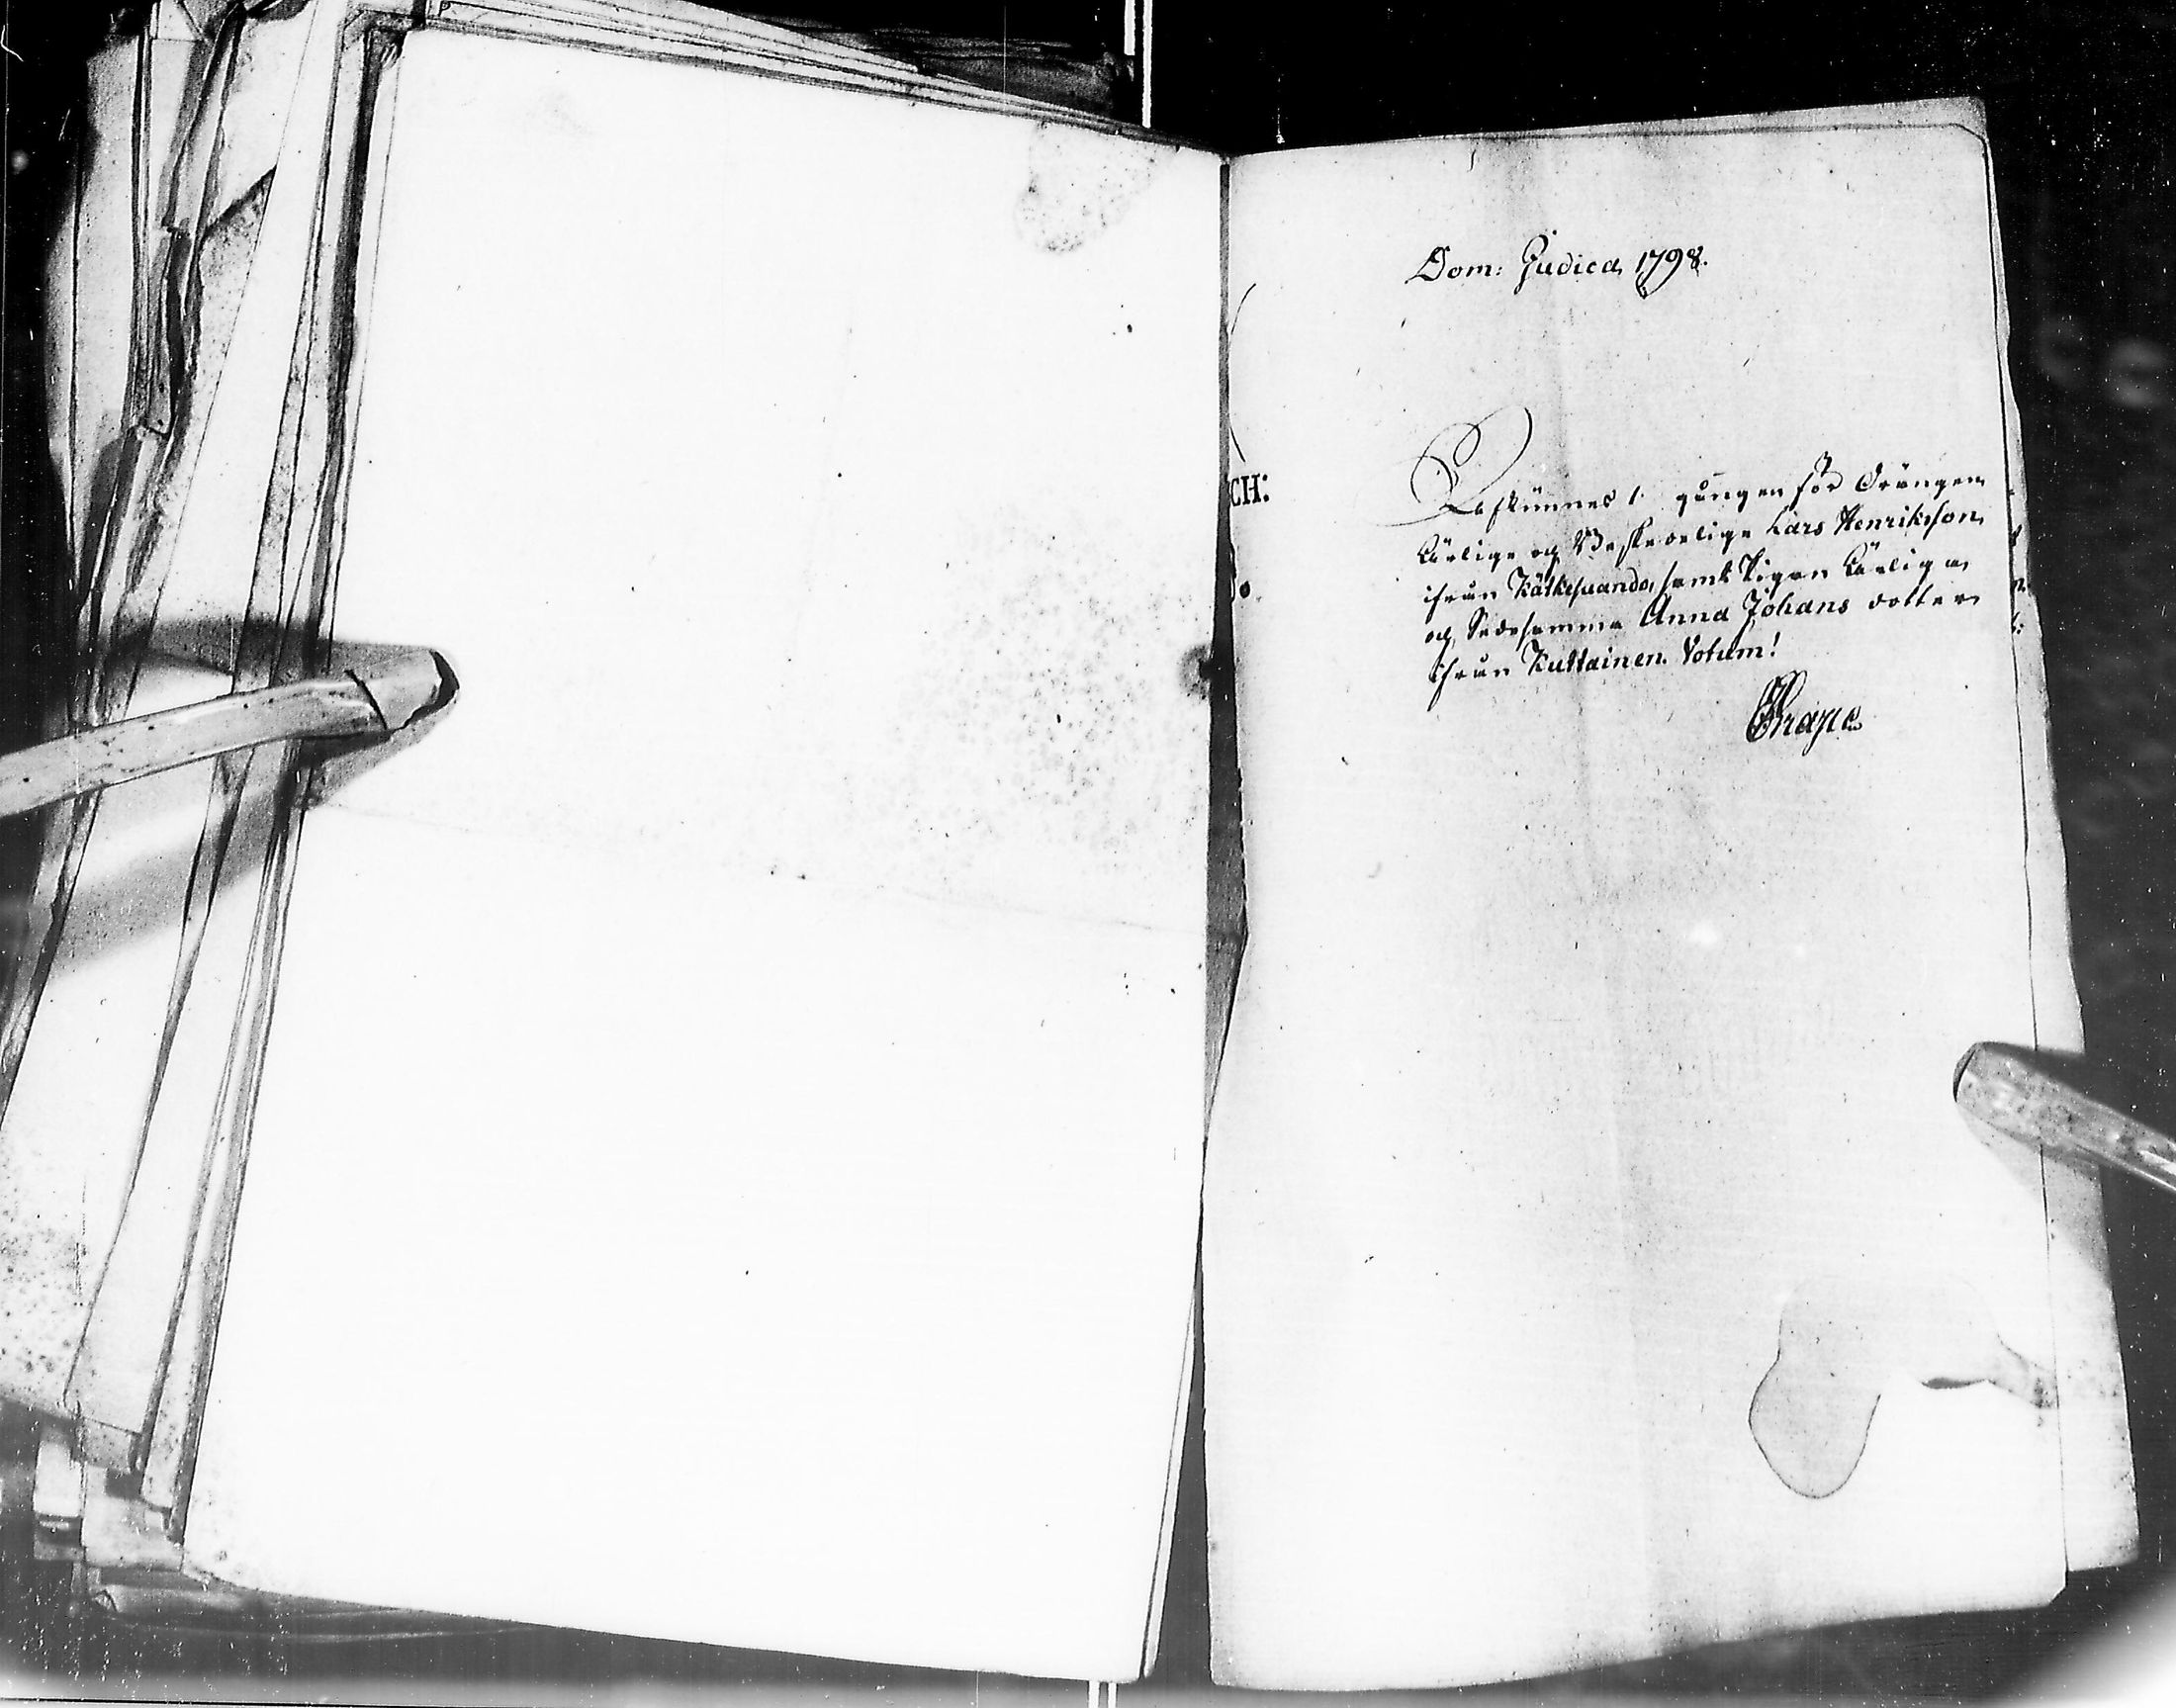 Dom: Judica 1798.
Afkunnes 1 gången för Drängen
Ärlige og Beskedelige Lars Henrikson
ifrån Kätkesuando, samt Pigan Ärliga
og Sedesamma Anna Johans dotter
ifrån Kuttainen. Votum!
CH: